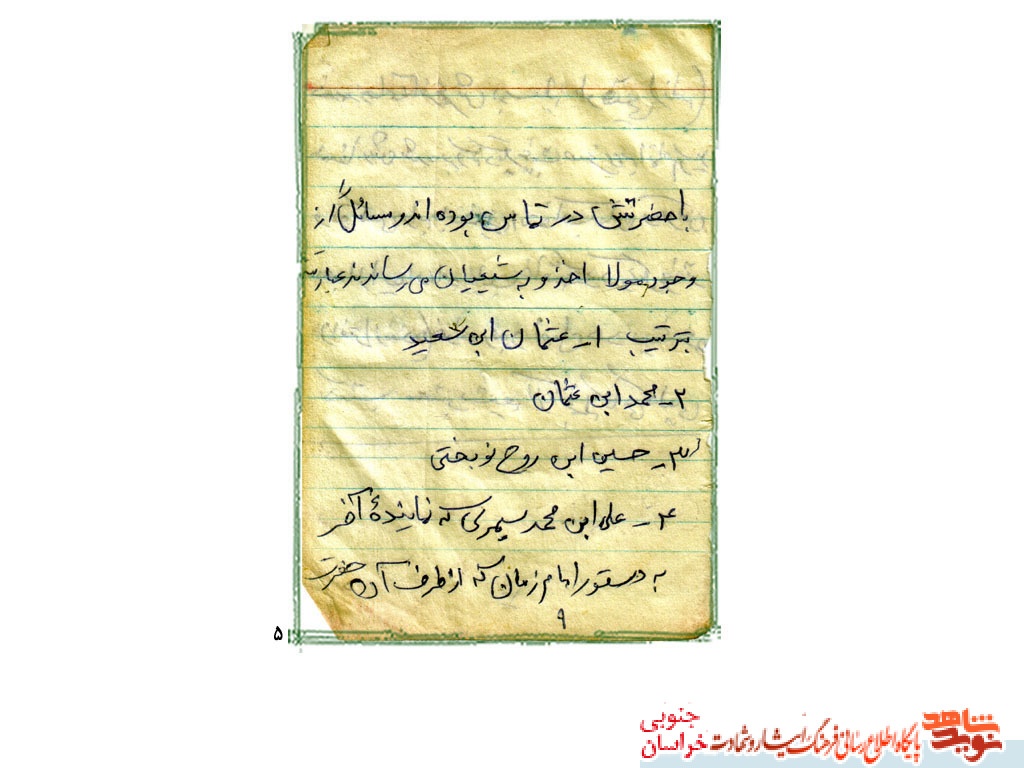 با حضرتش در تماس بوده اند و مسائل را از
وجود مولا اخذ و به شیعیان می رساندند عبارت
بترتیب ۱ـ عثمان ابن سعید
۲ـ محمد ابن عثمان
۳ـ حسین ابن روح نوبختی
۴ـ علی ابن محمد سیمری که نمایندهٔ آخر
به دستور امام زمان که از طرف آن حضرت
۹
۵
نوید شاهد
پایگاه اطلاع رسانی فرهنگ ایثار و شهادت
خراسان جنوبی